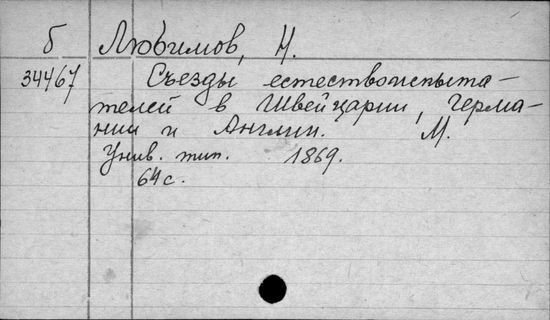 б Любимов, Н.
34467 Съезды естествоиспыта-
телей в Швейцарии, Герма-
нии и Англии. М.
Унив. тип. 1869.
64 с.